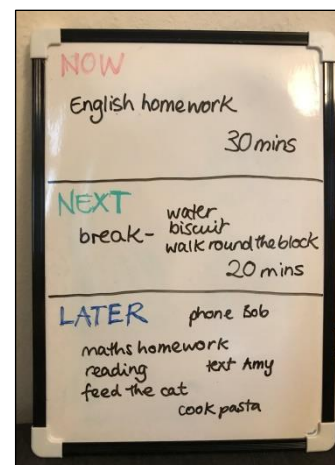 NOW
English homework
30 mins
NEXT
water
break - biscuit
walk round the block
20 mins
LATER
phone Bob
maths homework
reading
text Amy
feed the cat
cook pasta